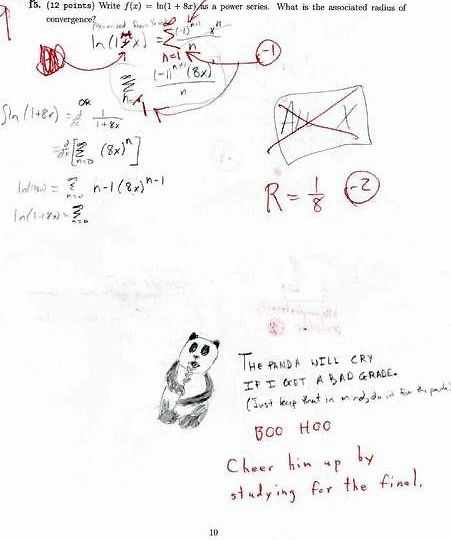 15. (12 points) Write f(x) = ln(1 + 8x) as a power series. What is the associated radius of
convergence?
9
ln(1+x) = Σ n=1 ∞ (-1)ⁿ⁺¹ xⁿ / n
-1
Σ n=1 (-1)ⁿ⁺¹ (8x)ⁿ / n
OR
ln(1+8x) = 1 / 1+8x
= [Σ n=0 (8x)ⁿ]
= Σ n-1(8x)ⁿ⁻¹
Σ n=0
All X
R = 1/8
-2
THE PANDA WILL CRY
IF I GET A BAD GRADE.
(Just keep that in mind, do it for the panda)
BOO HOO
Cheer him up by
studying for the final.
10